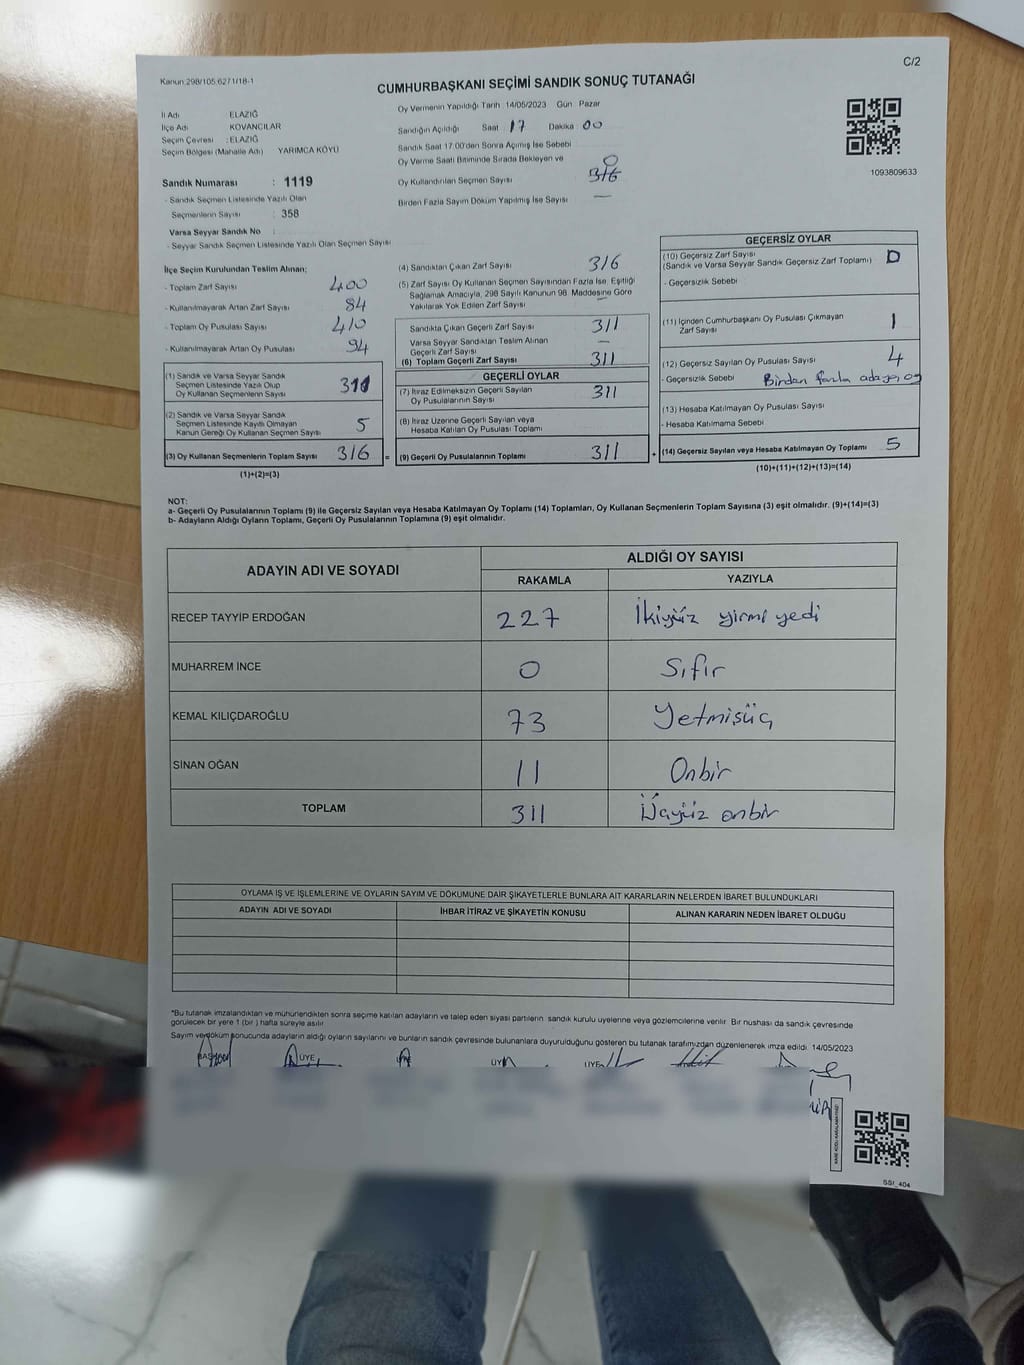 Kanun 298/105,6271/18-1
C/2
CUMHURBAŞKANI SEÇİMİ SANDIK SONUÇ TUTANAĞI
İl Adı ELAZIĞ
İlçe Adı KOVANCILAR
Seçim Çevresi : ELAZIĞ
Seçim Bölgesi (Mahalle Adı) YARIMCA KÖYÜ
Sandık Numarası : 1119
- Sandık Seçmen Listesinde Yazılı Olan
Seçmenlerin Sayısı : 358
Varsa Seyyar Sandık No :
- Seyyar Sandık Seçmen Listesinde Yazılı Olan Seçmen Sayısı
Oy Vermenin Yapıldığı Tarih 14/05/2023 Gün Pazar
Sandığın Açıldığı Saat 17 Dakika 00
Sandık Saat 17.00'den Sonra Açılmış İse Sebebi
Oy Verme Saati Bitiminde Sırada Bekleyen ve 0
Oy Kullandırılan Seçmen Sayısı 316
Birden Fazla Sayım Döküm Yapılmış İse Sayısı —
1093809633
İlçe Seçim Kurulundan Teslim Alınan;
- Toplam Zarf Sayısı 400
- Kullanılmayarak Artan Zarf Sayısı 84
- Toplam Oy Pusulası Sayısı 410
- Kullanılmayarak Artan Oy Pusulası 94
(1) Sandık ve Varsa Seyyar Sandık
Seçmen Listesinde Yazılı Olup
Oy Kullanan Seçmenlerin Sayısı 311
(2) Sandık ve Varsa Seyyar Sandık
Seçmen Listesinde Kayıtlı Olmayan
Kanun Gereği Oy Kullanan Seçmen Sayısı 5
(3) Oy Kullanan Seçmenlerin Toplam Sayısı 316 =
(1)+(2)=(3)
(4) Sandıktan Çıkan Zarf Sayısı 316
(5) Zarf Sayısı Oy Kullanan Seçmen Sayısından Fazla İse, Eşitliği
Sağlamak Amacıyla, 298 Sayılı Kanunun 98. Maddesine Göre
Yakılarak Yok Edilen Zarf Sayısı —
Sandıkta Çıkan Geçerli Zarf Sayısı 311
Varsa Seyyar Sandıktan Teslim Alınan
Geçerli Zarf Sayısı —
(6) Toplam Geçerli Zarf Sayısı 311
GEÇERLİ OYLAR
(7) İtiraz Edilmeksizin Geçerli Sayılan
Oy Pusulalarının Sayısı 311
(8) İtiraz Üzerine Geçerli Sayılan veya
Hesaba Katılan Oy Pusulası Toplamı
(9) Geçerli Oy Pusulalarının Toplamı 311 +
GEÇERSİZ OYLAR
(10) Geçersiz Zarf Sayısı
(Sandık ve Varsa Seyyar Sandık Geçersiz Zarf Toplamı) 0
- Geçersizlik Sebebi
(11) İçinden Cumhurbaşkanı Oy Pusulası Çıkmayan
Zarf Sayısı 1
(12) Geçersiz Sayılan Oy Pusulası Sayısı 4
- Geçersizlik Sebebi Birden fazla adaya oy
(13) Hesaba Katılmayan Oy Pusulası Sayısı
- Hesaba Katılmama Sebebi
(14) Geçersiz Sayılan veya Hesaba Katılmayan Oy Toplamı 5
(10)+(11)+(12)+(13)=(14)
NOT:
a- Geçerli Oy Pusulalarının Toplamı (9) ile Geçersiz Sayılan veya Hesaba Katılmayan Oy Toplamı (14) Toplamları, Oy Kullanan Seçmenlerin Toplam Sayısına (3) eşit olmalıdır. (9)+(14)=(3)
b- Adayların Aldığı Oyların Toplamı, Geçerli Oy Pusulalarının Toplamına (9) eşit olmalıdır.
ADAYIN ADI VE SOYADI
ALDIĞI OY SAYISI
RAKAMLA YAZIYLA
RECEP TAYYİP ERDOĞAN 227 İkiyüz yirmi yedi
MUHARREM İNCE 0 Sıfır
KEMAL KILIÇDAROĞLU 73 Yetmişüç
SİNAN OĞAN 11 Onbir
TOPLAM 311 Üçyüz onbir
OYLAMA İŞ VE İŞLEMLERİNE VE OYLARIN SAYIM VE DÖKÜMÜNE DAİR ŞİKAYETLERLE BUNLARA AİT KARARLARIN NELERDEN İBARET BULUNDUKLARI
ADAYIN ADI VE SOYADI İHBAR İTİRAZ VE ŞİKAYETİN KONUSU ALINAN KARARIN NEDEN İBARET OLDUĞU
*Bu tutanak imzalandıktan ve mühürlendikten sonra seçime katılan adayların ve talep eden siyasi partilerin sandık kurulu üyelerine veya gözlemcilerine verilir. Bir nüshası da sandık çevresinde
görülecek bir yere 1 (bir) hafta süreyle asılır.
Sayım ve döküm sonucunda adayların aldığı oyların sayılarını ve bunların sandık çevresinde bulunanlara duyurulduğunu gösteren bu tutanak tarafımızdan düzenlenerek imza edildi. 14/05/2023
ÜYE ÜYE ÜYE
SSI_404